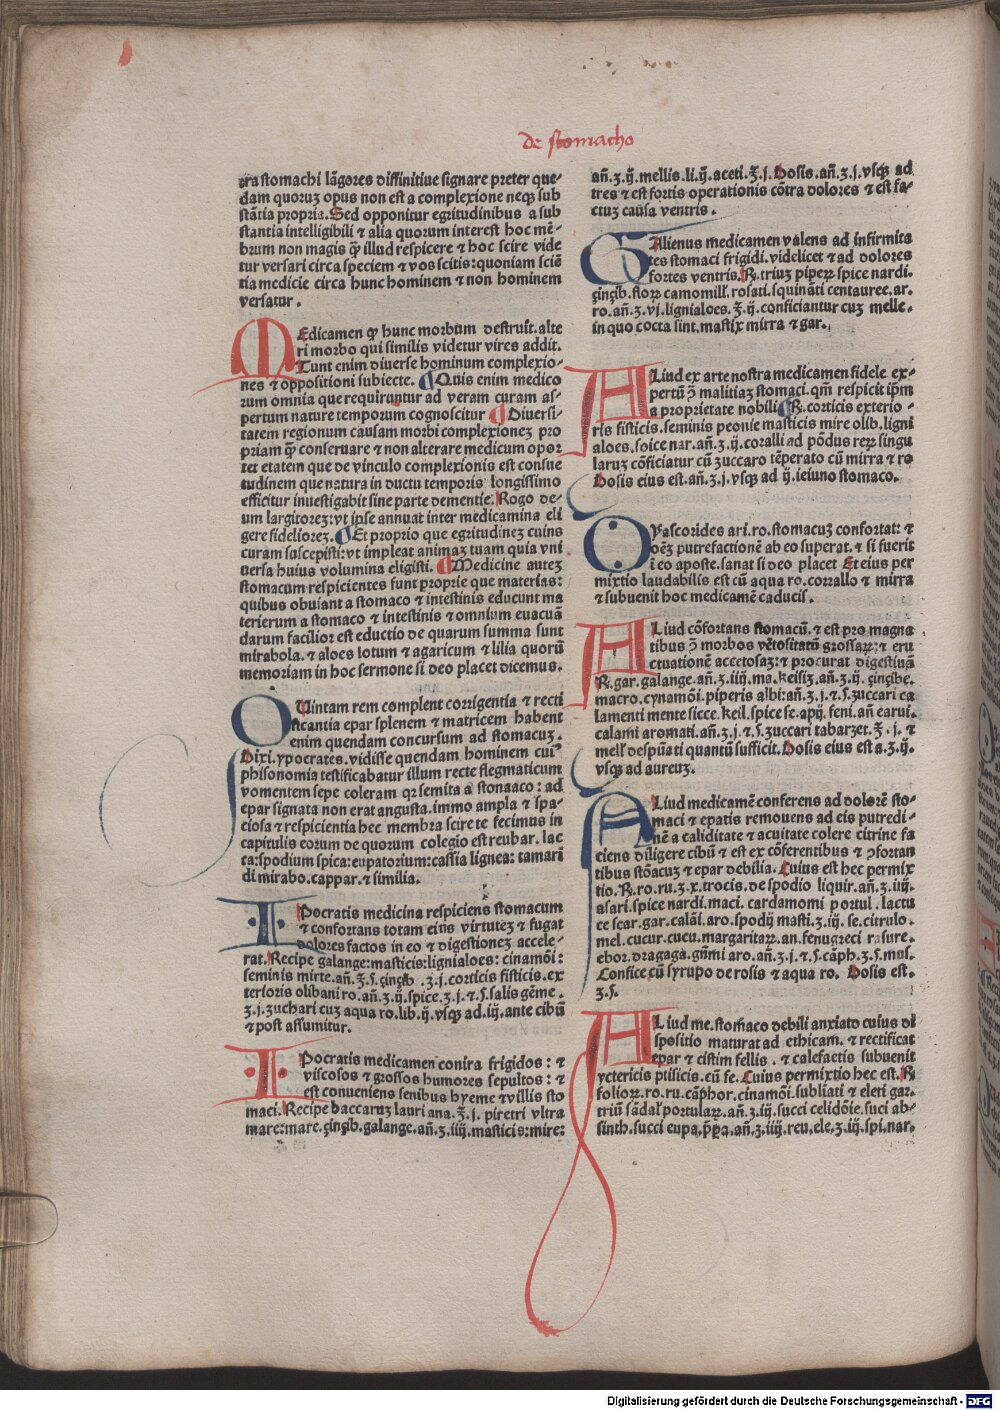 de stomacho
tra stomachi lãgores diffinitiue signare preter que-
dam quoruʒ opus non est a complexione neqʒ sub
stãtia propria. Sed opponitur egritudinibus a sub
stantia intelligibili ⁊ alia quorum interest hoc mẽ-
brum non magis ꝙ illud respicere ⁊ hoc scire vide
tur versari circa speciem ⁊ vos scitis: quoniam sciẽ
tia medicie circa hunc hominem ⁊ non hominem
versatur.
MEdicamen ꝙ hunc morbum destruit. alte
ri morbo qui similis videtur vires addit.
Sunt enim diuerse hominum complexio-
nes ⁊ oppositioni subiecte. ¶ Quis enim medico
rum omnia que requiruntur ad veram curam as-
pertum nature temporum cognoscitur ¶ Diuersi-
tatem regionum causam morbi complexioneʒ pro
priam ꝙ conseruare ⁊ non alterare medicum opor
tet etatem que de vinculo complexionis est consue
tudinem que natura in ductu temporis longissimo
efficitur inuestigabit sine parte dementie. Rogo de-
um largitoreʒ: vt ipse annuat inter medicamina eli
gere fidelioreʒ. ¶ Et proprio que egritudineʒ cuius
curam suscepisti: vt impleat animaʒ tuam quia vni
uersa huius volumina eligisti. ¶ Medicine auteʒ
stomacum respicientes sunt proprie que materias:
quibus obuiant a stomaco ⁊ intestinis educunt ma
terierum a stomaco ⁊ intestinis ⁊ omnium euacuã
darum facilior est eductio de quarum summa sunt
mirabola. ⁊ aloes lotum ⁊ agaricum ⁊ lilia quorũ
memoriam in hoc sermone si deo placet dicemus.
QUintam rem complent corrigentia ⁊ recti
ficantia epar splenem ⁊ matricem habent
enim quendam concursum ad stomacuʒ.
Dixi. ypocrates. vidisse quendam hominem cui⁹
phisonomia testificabatur illum recte flegmaticum
vomentem sepe coleram qr semita a stomaco: ad
epar signata non erat angusta. immo ampla ⁊ spa-
ciosa ⁊ respicientia hec membra scire te fecimus in
capitulis eorum de quorum colegio est reubar. lac
ca: spodium spica: eupatorium: cassia lignea: tamari
di mirabo. cappar. ⁊ similia.
IPocratis medicina respiciens stomacum
⁊ confortans totam eius virtuteʒ ⁊ fugat
dolores factos in eo ⁊ digestioneʒ accele-
rat. Recipe galange: masticis: lignialoes: cinamõi:
seminis mirte. añ. ʒ. s. çinçib. ʒ. j. corticis fisticis. ex
terioris olibani ro. añ. ʒ. ij. spice. ʒ. j. ⁊. s. salis gẽme.
ʒ. j. ʒuchari cuʒ aqua ro. lib. ij. vsqʒ ad. iij. ante cibũ
⁊ post assumitur.
IPocratis medicamen contra frigidos: ⁊
viscosos ⁊ grossos humores sepultos: ⁊
est conueniens senibus hyeme ⁊ villis sto
maci. Recipe baccaruʒ lauri ana. ℥. j. piretri vltra
mare: mare. çinçib. galange. añ. ʒ. iiij. masticis: mire:
añ. ʒ. ij. mellis. li. ij. aceti. ℥. j. Dosis. añ. ʒ. j. vsqʒ ad
tres ⁊ est fortis operationis cõtra dolores ⁊ est fa-
ctuʒ causa ventris.
GAlienus medicamen valens ad infirmita
tes stomaci frigidi. videlicet ⁊ ad dolores
fortes ventris. ℞. triuʒ piperꝝ spice nardi.
çinçib. florꝝ camomill. rosati. squinãti centauree. ar.
ro. añ. ʒ. vj. lignialoes. ℥. ij. conficiantur cuʒ melle.
in quo cocta sint. mastix mirra ⁊ gar.
ALiud ex arte nostra medicamen fidele ex-
pertũ ꝓ malitiaʒ stomaci. qm̃ respicit ipm̃
a proprietate nobili ¶ ℞. corticis exterio-
ris fisticis. seminis peonie masticis mire olib. ligni
aloes. spice nar. añ. ʒ. ij. coralli ad põdus rerꝝ singu
laruʒ cõficiatur cũ ʒuccaro tẽperato cũ mirra ⁊ ro
Dosis eius est. añ. ʒ. j. vsqʒ ad ij. ieiuno stomaco.
DYascorides ari. ro. stomacuʒ confortat: ⁊
oẽʒ putrefactionẽ ab eo superat. ⁊ si fuerit
ĩ eo aposte. sanat si deo placet Et eius per
mixtio laudabilis est cũ aqua ro. corrallo ⁊ mirra
⁊ subuenit hoc medicamẽ caducis.
ALiud cõfortans stomacũ. ⁊ est pro magna
tibus ꝓ morbos vẽtositatũ grossarꝝ: ⁊ eru
ctuationẽ accetosaʒ: ⁊ procurat digestiuã
℞. gar. galange. añ. ʒ. iiij. ma. keisiʒ. añ. ʒ. ij. çinçibe.
macro. cynamõi. piperis albi: añ. ʒ. j. ⁊. s. ʒuccari ca
lamenti mente sicce. keil. spice se. apij. feni. añ earui.
calami aromati. añ. ʒ. j. ⁊. s. ʒuccari tabarʒet. ℥. j. ⁊
mell' despũati quantũ sufficit. Dosis eius est a. ʒ. ij.
vsqʒ ad aureuʒ.
ALiud medicamẽ conferens ad dolorẽ sto-
maci ⁊ epatis remouens ad eis putredi-
nẽ a caliditate ⁊ acuitate colere citrine fa
ciens diligere cibũ ⁊ est ex cõferentibus ⁊ ꝯfortan
tibus stõacuʒ ⁊ epar debilia. Cuius est hec permix
tio. ℞. ro. ru. ʒ. x. trocis. de spodio liquir. añ. ʒ. iij.
asari. spice nardi. maci. cardamomi portul. lactu
ce scar. gar. calãi. aro. spodij masti. ʒ. iij. se. citrulo.
mel. cucur. cucu. margaritarꝝ. an. fenugreci rasure.
ebor. dragaga. gũmi aro. añ. ʒ. j. ⁊. s. cãph. ʒ. s. mus.
Confice cũ syrupo de rosis ⁊ aqua ro. Dosis est.
ʒ. s.
ALiud me. stomaco debili anxiato cuius di
spositio maturat ad ethicam. ⁊ rectificat
epar ⁊ cistim fellis. ⁊ calefactis subuenit
yctericis ptisicis. cũ fe. Cuius permixtio hec est. ℞
foliorꝝ. ro. ru. cãphor. cinamõi. subliati ⁊ eleti gar.
triũ sãdal' portularꝝ. añ. ʒ. iij. succi celidõie. suci ab-
sinth. succi eupa. p̃p̃a. añ. ʒ. iiij. reu. ele. ʒ. iij. spi. nar.
Digitalisierung gefördert durch die Deutsche Forschungsgemeinschaft - DFG